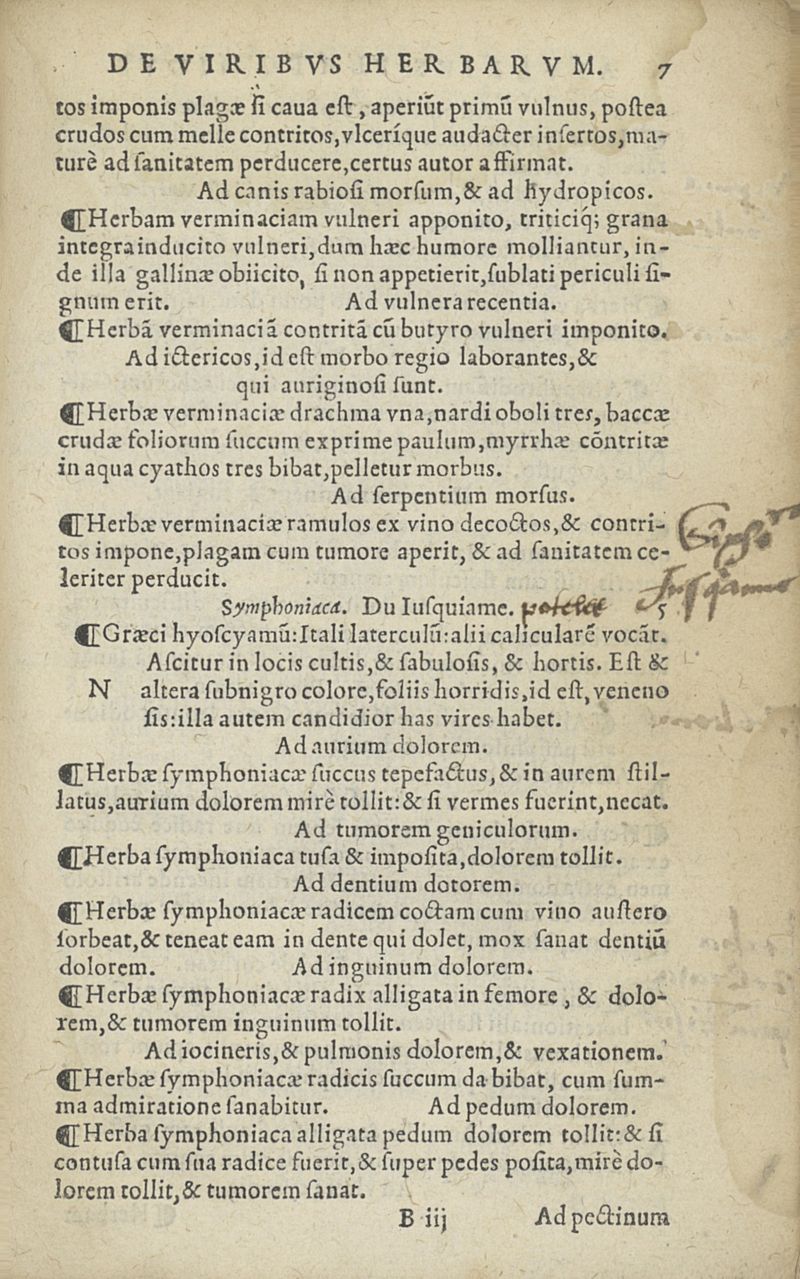 DE VIRIBVS HERBARVM. 7
tos imponis plagæ ſi caua eſt, aperiũt primũ vulnus, poſtea
crudos cum melle contritos, vlceríque audacter inſertos, ma-
turè ad ſanitatem perducere, certus autor affirmat.
Ad canis rabioſi morſum, & ad hydropicos.
¶Herbam verminaciam vulneri apponito, triticiq; grana
integra inducito vulneri, dum hæc humore molliantur, in-
de illa gallinæ obiicito, ſi non appetierit, ſublati periculi ſi-
gnum erit. Ad vulnera recentia.
¶Herbã verminaciã contritã cũ butyro vulneri imponito.
Ad ictericos, id eſt morbo regio laborantes, &
qui auriginoſi ſunt.
¶Herbæ verminaciæ drachma vna, nardi oboli tres, baccæ
crudæ foliorum ſuccum exprime paulum, myrrhæ cõtritæ
in aqua cyathos tres bibat, pelletur morbus.
Ad ſerpentium morſus.
¶Herbæ verminaciæ ramulos ex vino decoctos, & contri-
tos impone, plagam cum tumore aperit, & ad ſanitatem ce-
leriter perducit.
Symphoniaca. Du Iuſquiame. 5
¶Græci hyoſcyamũ: Itali laterculũ: alii calicularẽ vocãt.
Aſcitur in locis cultis, & ſabuloſis, & hortis. Eſt &
N altera ſubnigro colore, foliis horridis, id eſt, veneno
ſis: illa autem candidior has vires habet.
Ad aurium dolorem.
¶Herbæ ſymphoniacæ ſuccus tepefactus, & in aurem ſtil-
latus, aurium dolorem mirè tollit: & ſi vermes fuerint, necat.
Ad tumorem geniculorum.
¶Herba ſymphoniaca tuſa & impoſita, dolorem tollit.
Ad dentium dotorem.
¶Herbæ ſymphoniacæ radicem coctam cum vino auſtero
ſorbeat, & teneat eam in dente qui dolet, mox ſanat dentiũ
dolorem. Ad inguinum dolorem.
¶Herbæ ſymphoniacæ radix alligata in femore, & dolo-
rem, & tumorem inguinum tollit.
Ad iocineris, & pulmonis dolorem, & vexationem.
¶Herbæ ſymphoniacæ radicis ſuccum da bibat, cum ſum-
ma admiratione ſanabitur. Ad pedum dolorem.
¶Herba ſymphoniaca alligata pedum dolorem tollit: & ſi
contuſa cum ſua radice fuerit, & ſuper pedes poſita, mirè do-
lorem tollit, & tumorem ſanat.
B iij Ad pectinum